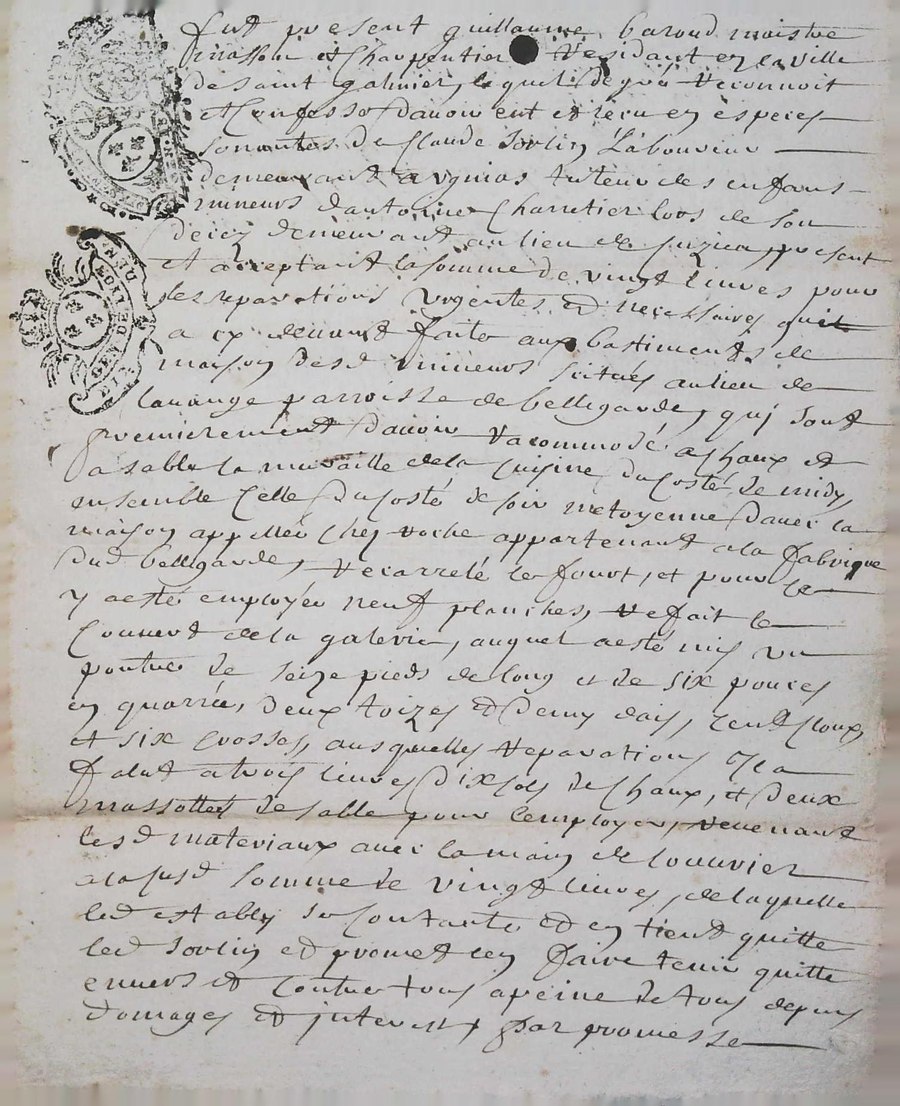 fut present guillaume baroud maistre
masson et Charpentier residant en la ville
de saint galmier, lequel de gré reconnoit
et Confesse davoir eut et recu en especes
sonnantes de Claude Sorlin Laboureur
demeurant a tuteur des enfans
mineurs dantoine Charretier lors de son
decez demeurant au lieu de present
et acceptant la somme de vingt livres pour
les reparations urgentes et necessaires quil
a cy devant faite aux bastiments de
maison desd mineurs scitues au lieu de
lavange parroisse de bellegarde, qui sont
premierement davoir racommodé a chaux et
a sable la muraille de la Cuisine du Costé de midy,
ensemble Celle du Costé de soir metoyenne davec la
maison appellée Chez roche appartenant a la fabrique
dud bellegarde, recarrelé le fourt, et pour ce
y a esté employée neuf planches, refait le
Couvert de la galerie, auquel a esté mis un
poutre de seize pieds de long et de six pouces
en quarré, deux toizes et demy dais, Cent Cloux,
et six Crosses, ausquelles reparations il a
falut a trois livres dix sols de Chaux, et deux
massottes de sable pour lemployer, revenant
lesd materiaux avec la main de louvrier
a la susd somme de vingt livres, de laquelle
led estably se Contante et en tient quitte
led Sorlin et promet len faire tenir quitte
envers et Contre tous a peine de tous depens
domages et interest, par promesse
GEN DE LYON